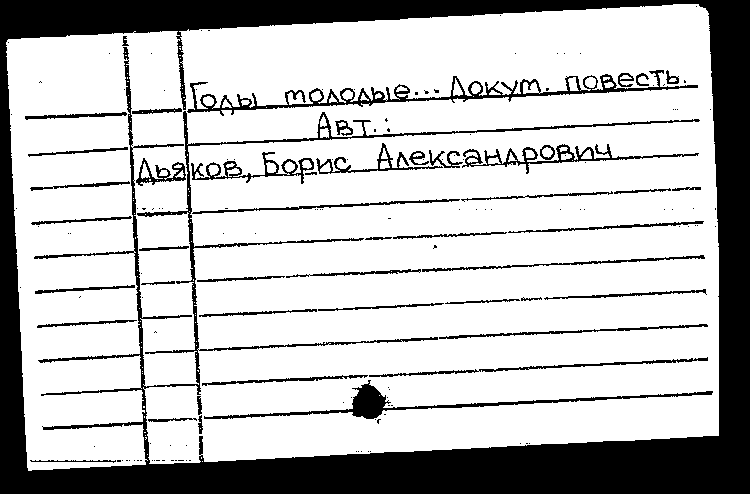 Годы молодые... Докум. повесть.
Авт.:
Дьяков, Борис Александрович